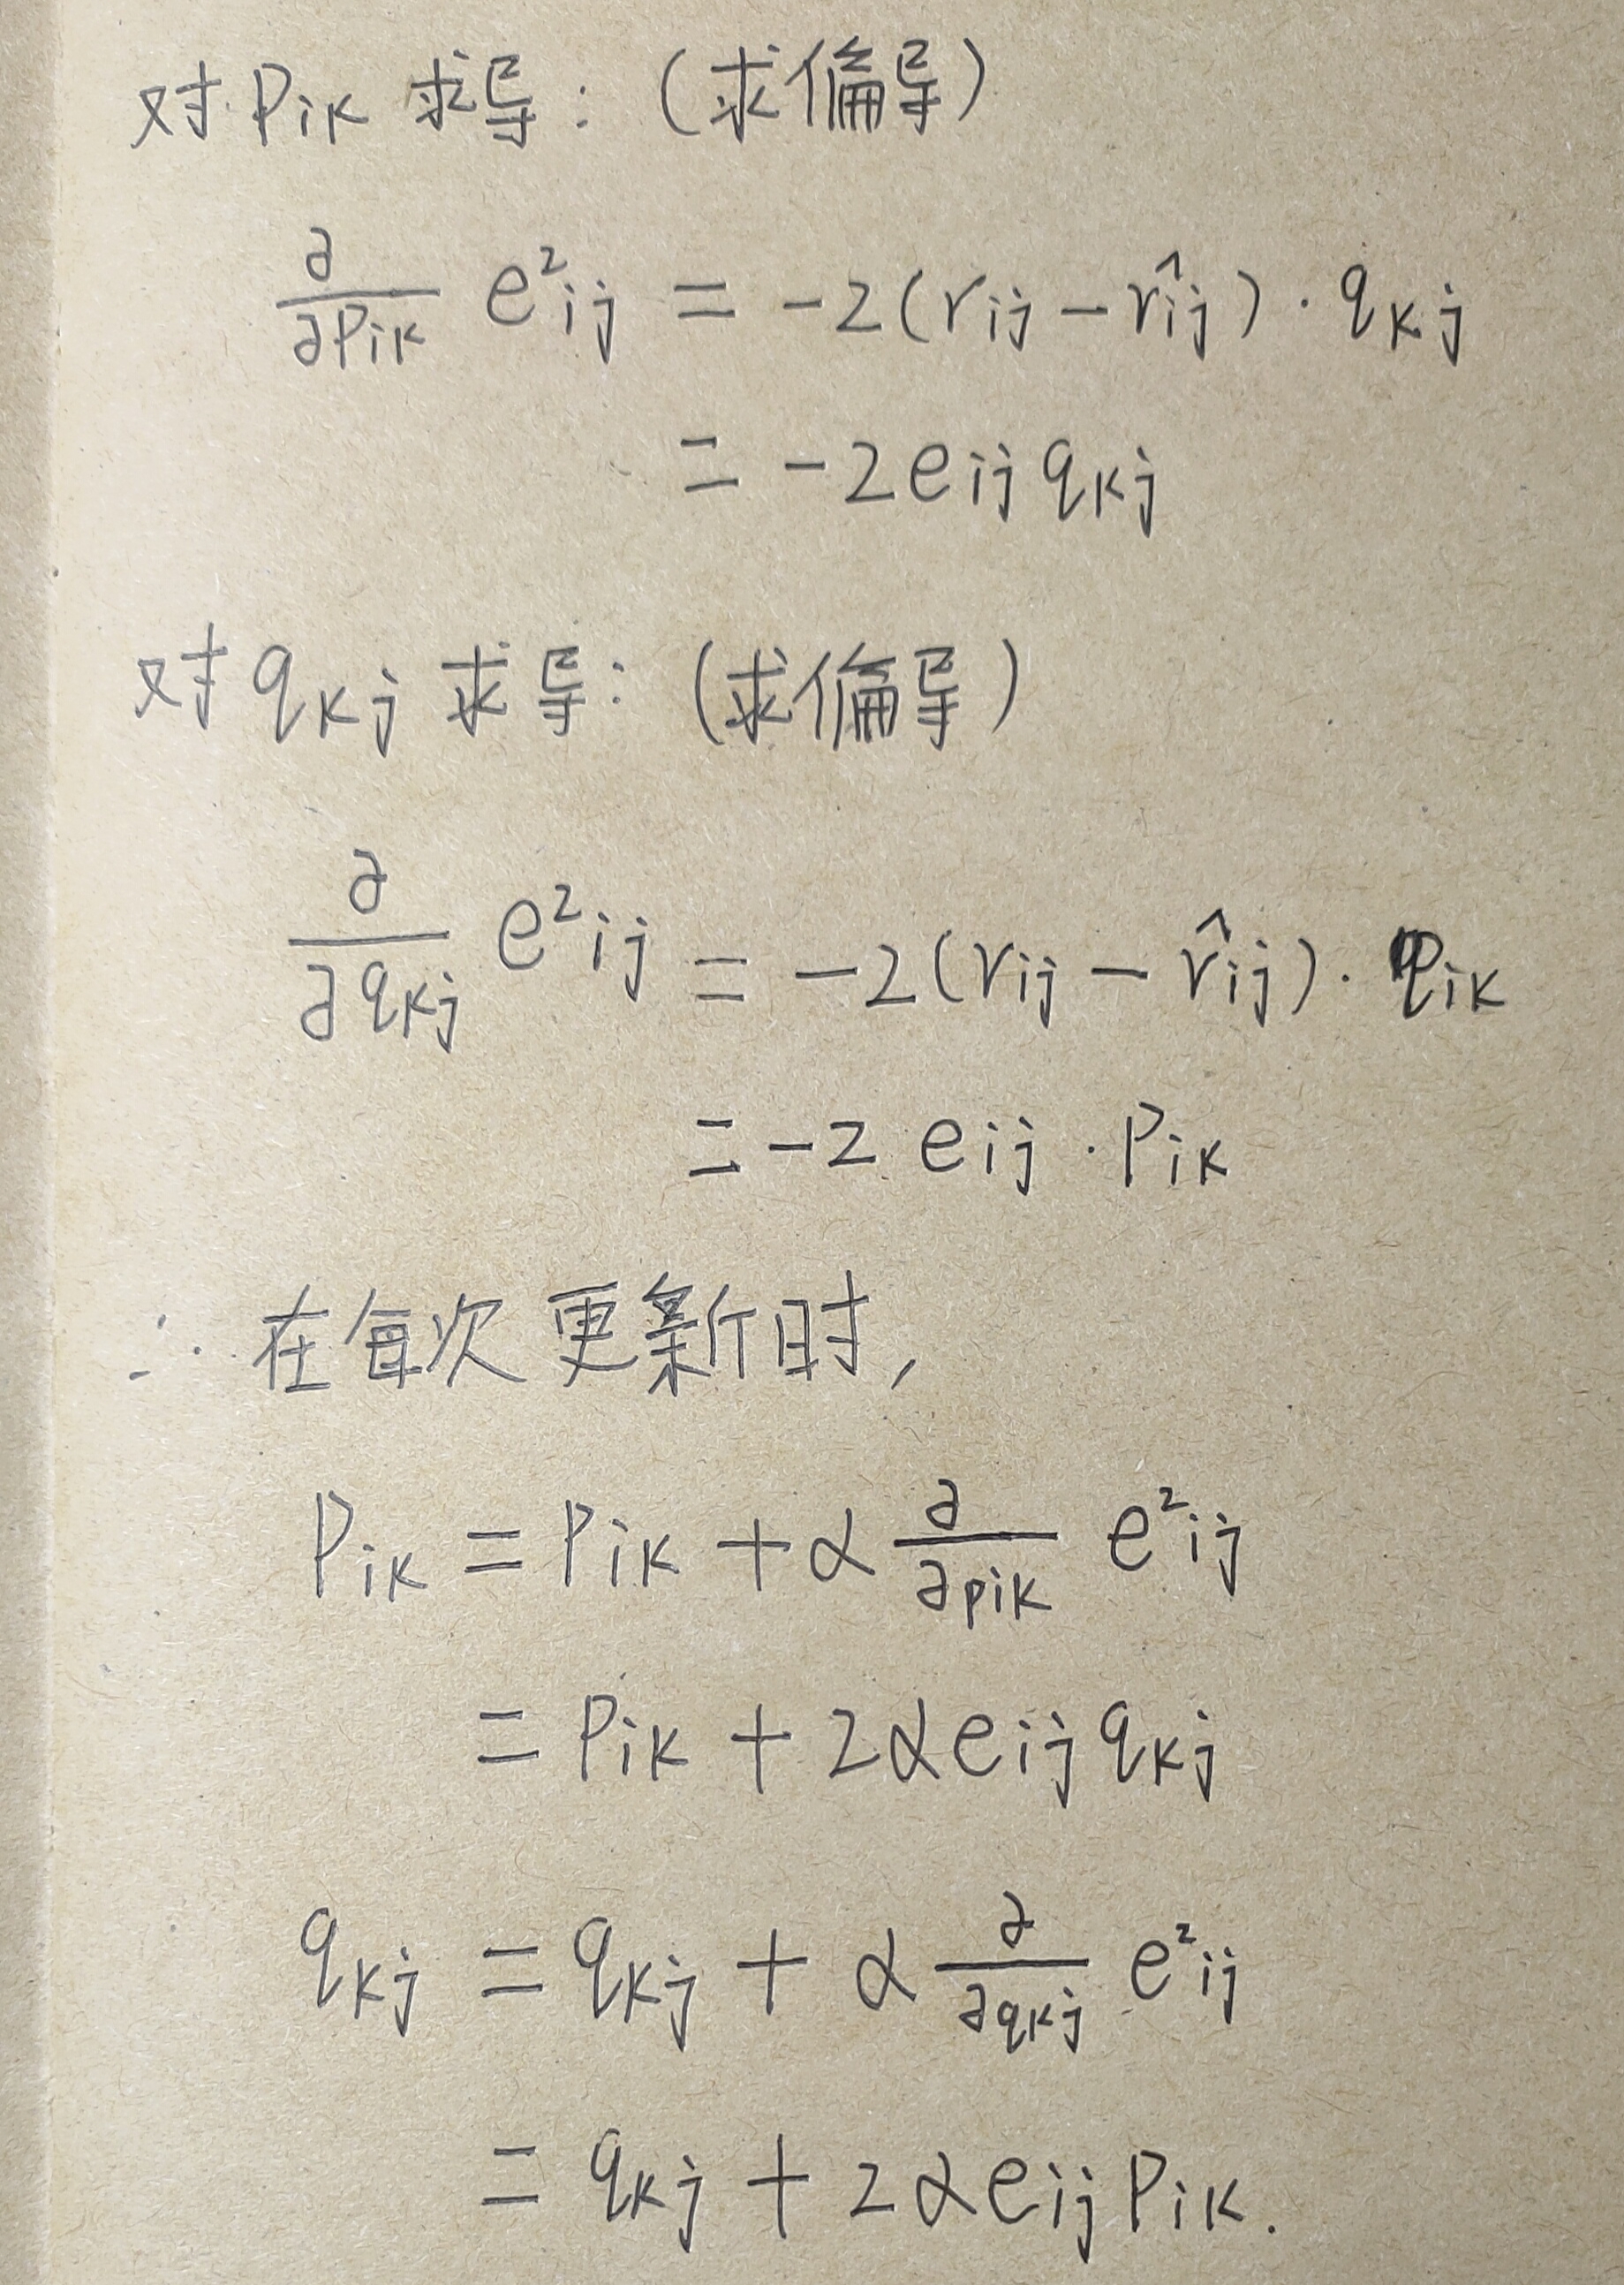 对 Pik 求导:(求偏导)
∂/∂Pik e²ij = -2(rij - r̂ij)·qkj
= -2eij qkj
对 qkj 求导:(求偏导)
∂/∂qkj e²ij = -2(rij - r̂ij)·Pik
= -2 eij·Pik
∴ 在每次更新时,
Pik = Pik + α ∂/∂pik e²ij
= Pik + 2αeij qkj
qkj = qkj + α ∂/∂qkj e²ij
= qkj + 2αeij Pik.